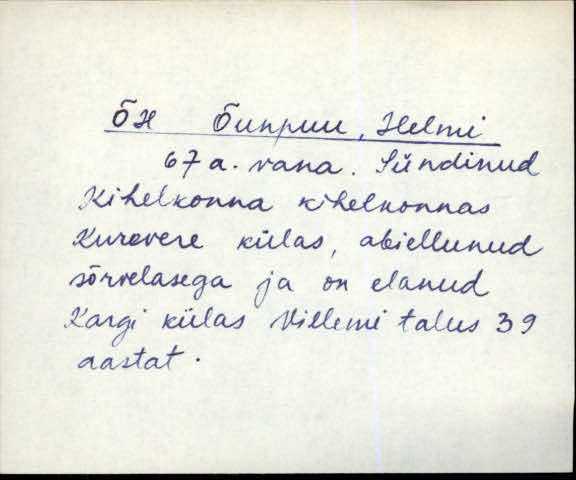 ÕH Õunpuu, Helmi
67 a. vana. Sündinud
Kihelkonna kihelkonnas
Kurevere külas, abiellunud
sõrvelasega ja on elanud
Kargi külas Villemi talus 39
aastat.